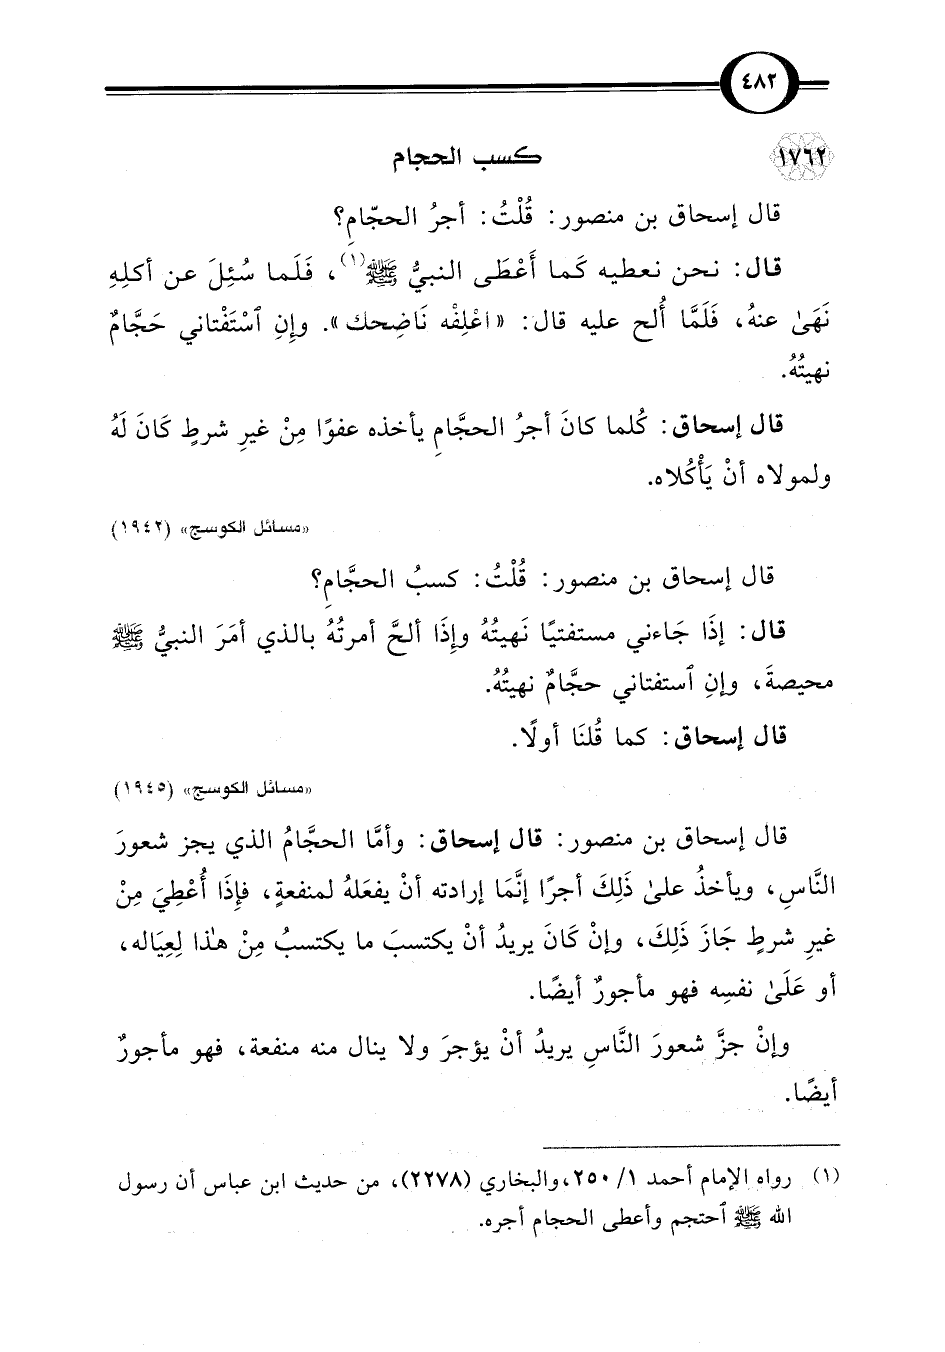 ٤٨٢
١٧٦٢ كسب الحجام
قال إسحاق بن منصور: قُلْتُ: أجرُ الحجّامِ؟
قال: نحن نعطيه كَما أَعْطَى النبيُّ ﷺ(١)، فَلَما سُئِلَ عن أكلِهِ
نَهَىٰ عنهُ، فَلَمَّا أُلح عليه قال: «اعْلِفْه نَاضِحك». وإنِ ٱسْتَفْتاني حَجَّامٌ
نهيتُهُ.
قال إسحاق: كُلما كانَ أجرُ الحجَّامِ يأخذه عفوًا مِنْ غيرِ شرطٍ كَانَ لَهُ
ولمولاه أنْ يَأْكُلاه.
«مسائل الكوسج» (١٩٤٢)
قال إسحاق بن منصور: قُلْتُ: كسبُ الحجَّامِ؟
قال: إذَا جَاءني مستفتيًا نَهيتُهُ وإذَا ألحَّ أمرتُهُ بالذي أمَرَ النبيُّ ﷺ
محيصةَ، وإنِ ٱستفتاني حجَّامٌ نهيتُهُ.
قال إسحاق: كما قُلنَا أولًا.
«مسائل الكوسج» (١٩٤٥)
قال إسحاق بن منصور: قال إسحاق: وأمَّا الحجَّامُ الذي يجز شعورَ
النَّاسِ، ويأخذُ علىٰ ذَلِكَ أجرًا إنَّمَا إرادته أنْ يفعَلهُ لمنفعةٍ، فإذَا أُعْطِيَ مِنْ
غيرِ شرطٍ جَازَ ذَلِكَ، وإنْ كَانَ يريدُ أنْ يكتسبَ ما يكتسبُ مِنْ هذا لِعِيَاله،
أو عَلَىٰ نفسِه فهو مأجورٌ أيضًا.
وإنْ جزَّ شعورَ النَّاسِ يريدُ أنْ يؤجرَ ولا ينال منه منفعة، فهو مأجورٌ
أيضًا.
(١) رواه الإمام أحمد ١/ ٢٥٠، والبخاري (٢٢٧٨)، من حديث ابن عباس أن رسول
الله ﷺ ٱحتجم وأعطى الحجام أجره.